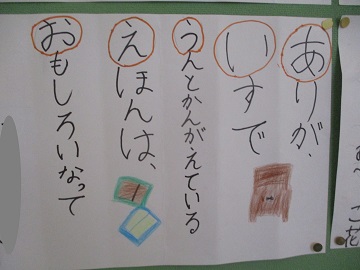 ありが、
いすで
うんとかんがえている
えほんは、
おもしろいなって